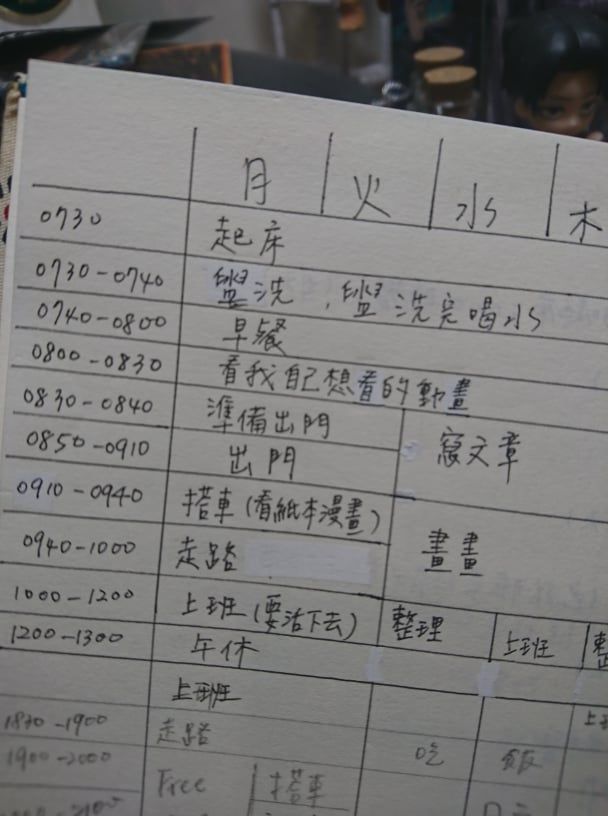 月 火 水 木
0730 起床
0730-0740 盥洗，盥洗完喝水
0740-0800 早餐
0800-0830 看我自己想看的動畫
0830-0840 準備出門 寫文章
0850-0910 出門
0910-0940 搭車(看紙本漫畫)
0940-1000 走路 畫畫
1000-1200 上班(要活下去) 整理 上班 整
1200-1300 午休
上班 上
1830-1900 走路
1900-2000 吃 飯
Free 搭車